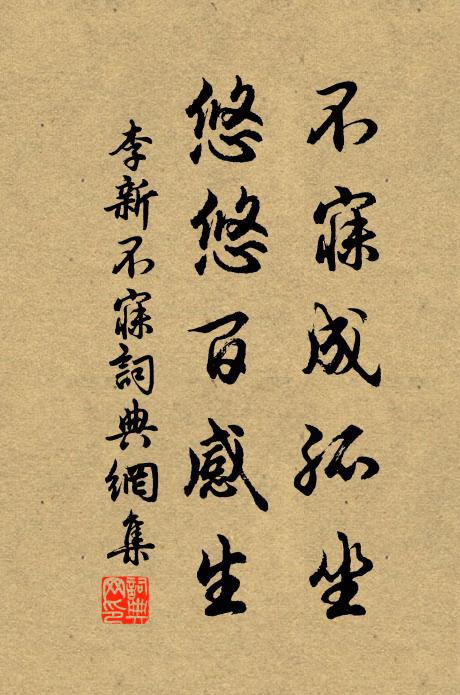 不寐成孤坐
悠悠百感生
李新不寐詞典網集
詞典网印